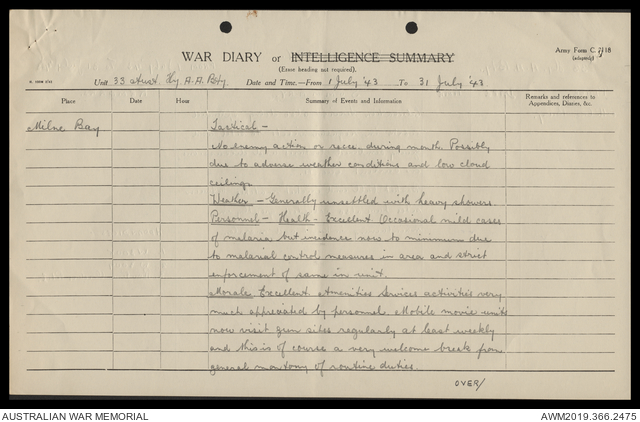 Army Form C. 2118
(adapted)
WAR DIARY or INTELLIGENCE SUMMARY
(Erase heading not required).
Unit 33 Aust. Hy. A.A. Bty. Date and Time.—From 1 July '43 To 31 July '43
Place Date Hour Summary of Events and Information Remarks and references to Appendices, Diaries, &c.
Milne Bay Tactical -
No enemy action or recce. during month. Possibly
due to adverse weather conditions and low cloud
ceilings.
Weather - Generally unsettled with heavy showers.
Personnel - Health - Excellent. Occasional mild cases
of malaria but incidence now to minimum due
to malarial control measures in area and strict
enforcement of same in unit.
Morale Excellent. Amenities Services activities very
much appreciated by personnel. Mobile movie units
now visit gun sites regularly at least weekly
and this is of course a very welcome break from
general monotony of routine duties.
OVER/
AUSTRALIAN WAR MEMORIAL AWM2019.366.2475